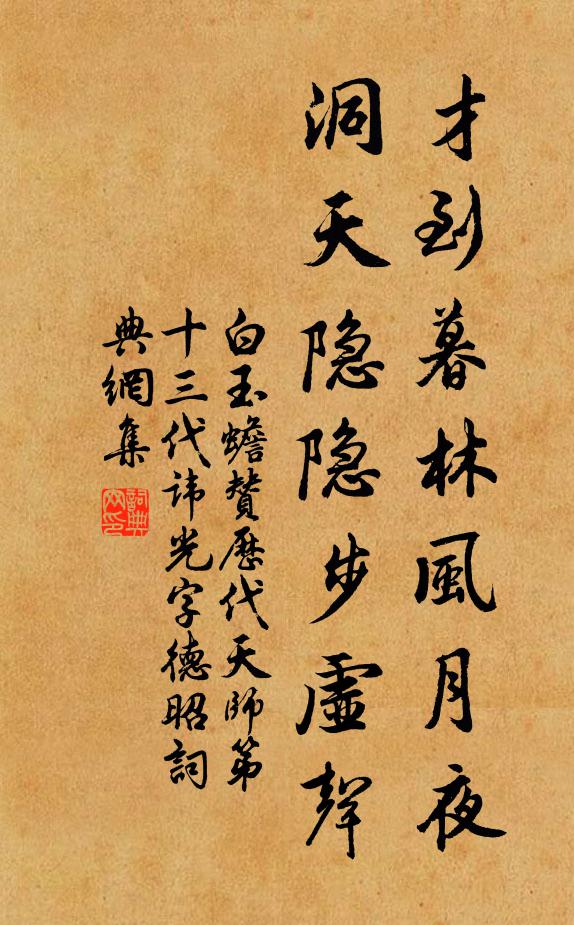 才到暮林風月夜
洞天隐隐步虛聲
白玉蟾贊歷代天師第
十三代諱光字德昭詞
典網集
詞典
网印